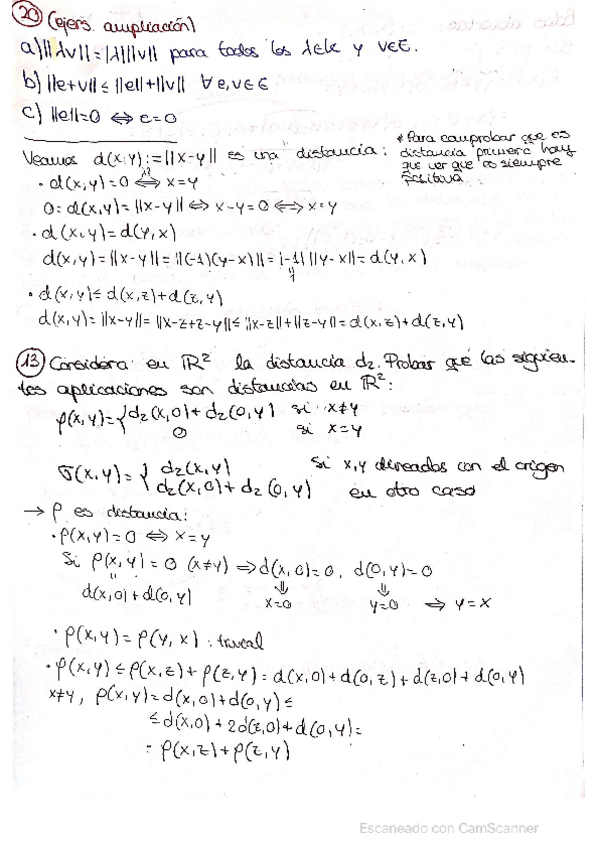 20 (ejers. ampliación)
a) ||λv|| = |λ| ||v|| para todos los λ∈k y v∈E.
b) ||e+v|| ≤ ||e|| + ||v|| ∀ e,v∈E
c) ||e||=0 ⇔ e=0
Veamos d(x,y):=||x-y|| es una "distancia":
* Para comprobar que es
distancia primero hay
que ver que es siempre
positiva.
· d(x,y)=0 ⇔ x=y
0= d(x,y)=||x-y|| ⇔ x-y=0 ⇔ x=y
· d(x,y)=d(y,x)
d(x,y)=||x-y||=||(-1)(y-x)||=|-1| ||y-x||=d(y,x)
· d(x,y)≤ d(x,z)+d(z,y)
d(x,y)=||x-y||=||x-z+z-y||≤||x-z||+||z-y||=d(x,z)+d(z,y)
13 Considera en ℝ² la distancia d₂. Probar que las siguien-
tes aplicaciones son distancias en ℝ²:
ρ(x,y)={ d₂(x,0)+d₂(0,y) si x≠y
0 si x=y
σ(x,y)={ d₂(x,y) si x,y alineados con el origen
d₂(x,0)+d₂(0,y) en otro caso
→ ρ es distancia:
· ρ(x,y)=0 ⇔ x=y
Si ρ(x,y)=0 (x≠y) ⇒ d(x,0)=0, d(0,y)=0
d(x,0)+d(0,y) x=0 y=0 ⇒ y=x
· ρ(x,y)=ρ(y,x) : trivial
· ρ(x,y)≤ρ(x,z)+ρ(z,y)=d(x,0)+d(0,z)+d(z,0)+d(0,y)
x≠y, ρ(x,y)=d(x,0)+d(0,y)≤
≤d(x,0)+2d(z,0)+d(0,y)=
=ρ(x,z)+ρ(z,y)
Escaneado con CamScanner